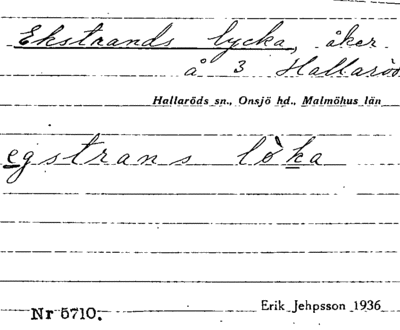 Ekstrands lycka, åker
å 3 Hallaröd
Hallaröds sn., Onsjö hd., Malmöhus län
egstrans lò̀ka
Erik Jehpsson 1936
Nr 5710.